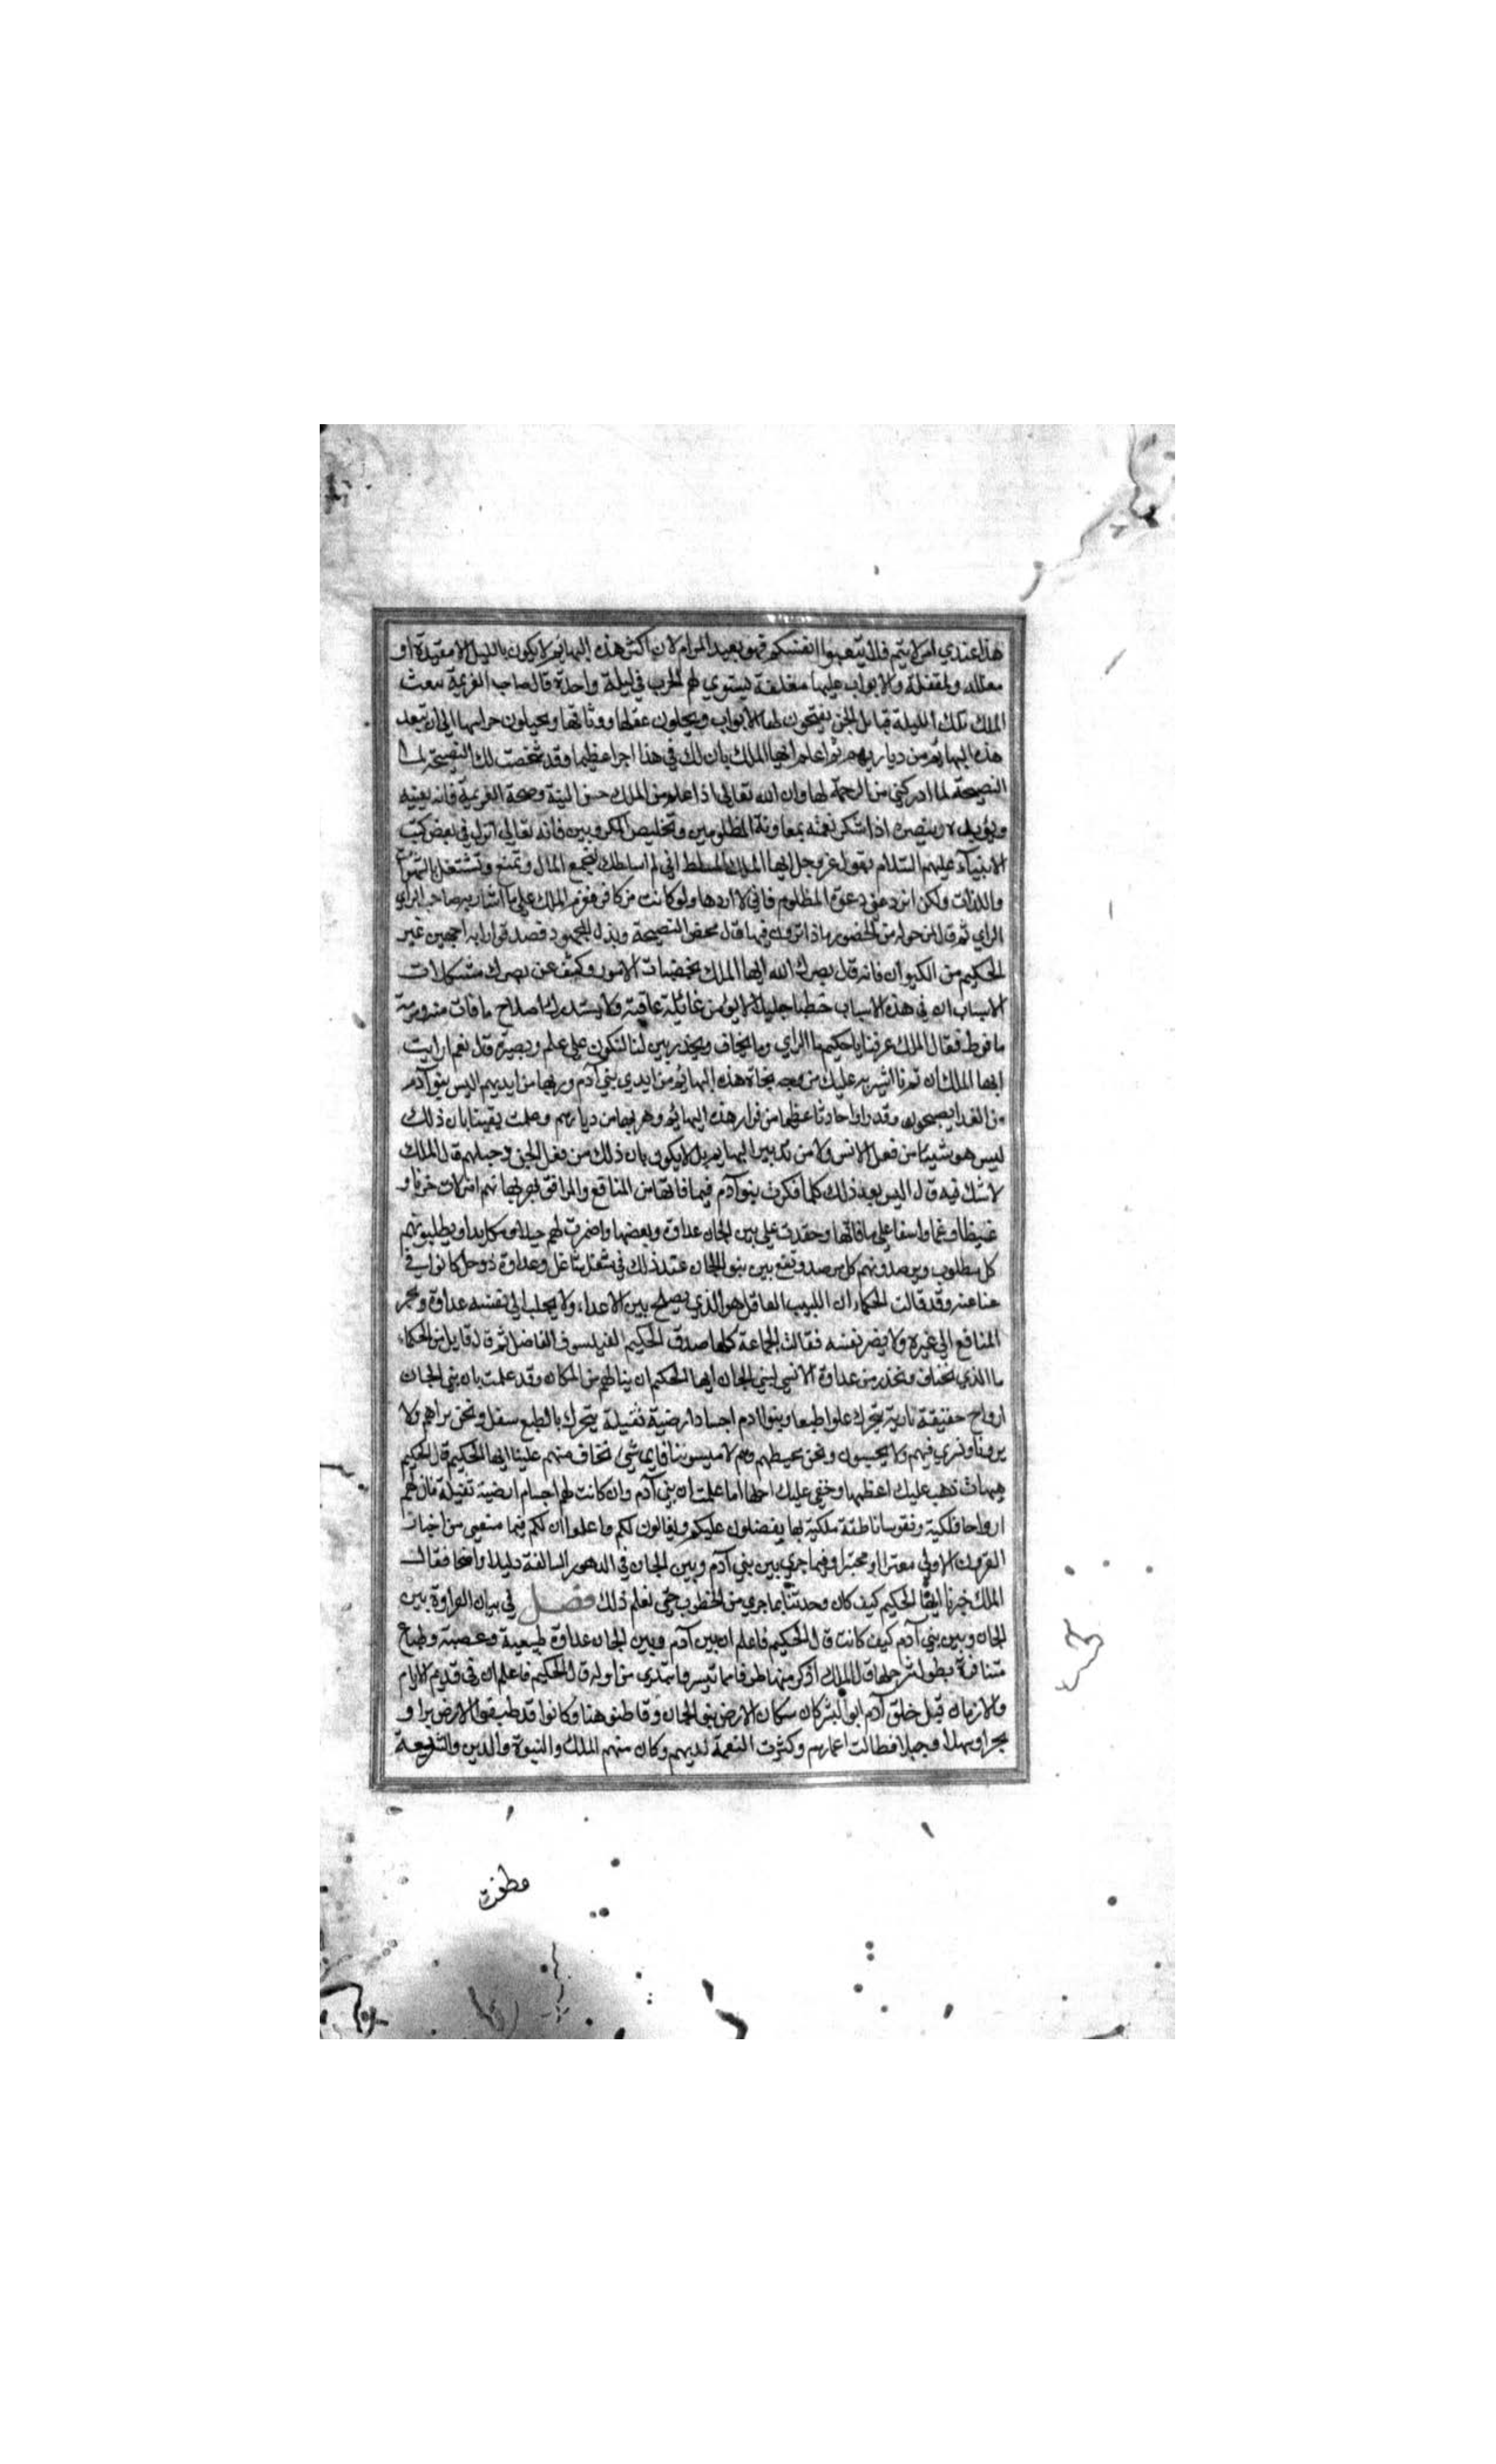 هذا عندي امر لا يتم فلا تتعبوا انفسكم فهو بعيد المرام لان اكثر هذه البهائم لا يكون بالليل الا مقيدة او
مغللة ومقفلة والابواب عليها مغلقة يستوي لهم الهرب في ليلة واحدة قال صاحب العزيمة يبعث
الملك تلك الليلة قبائل الجن يفتحون لها الابواب ويحلون عقلها ووثاقها ويحيلون حراسها الى ان تبعد
هذه البهائم من ديارهم واعلم ايها الملك بان لك في هذا اجرا عظيما وقد محضت لك النصيحة لما
النصيحة لما ادركني من الرحمة لها وان الله تعالى اذا علم من الملك حسن النية وصحة العزيمة فانه يعينه
ويؤيده وينصره اذا شكر نعمته بمعاونة المظلومين وتخليص المكروبين فانه تعالى انزل في بعض كتب
الانبياء عليهم السلام يقول عز وجل ايها الملك المسلط اني لم اسلطك لتجمع المال وتمتع وتشتغل بالشهوات
واللذات ولكن لترد عني دعوة المظلوم فاني لا اردها ولو كانت من كافر فعزم الملك على ما اشار به صاحب الراي
الراي ثم قال لمن حوله من الحضور ماذا ترون فيما قال محض النصيحة وبذل المجهود فصدقوا رايه اجمعين غير
الحكيم من الكيوان فانه قال بصرك الله ايها الملك بخفيات الامور وكشف عن بصرك مشكلات
الاسباب ان في هذه الاسباب خطبا جليلا لا يؤمن غائلة عاقبته ولا يستدرك اصلاح ما فات منه ومرمة
ما فرط فقال الملك عرفنا يا حكيم ما الراي وما يخاف ويحذر بين لنا لنكون على علم وبصيرة قال نعم ارايت
ايها الملك ان تم ما اشير به عليك من وجه نجاة هذه البهائم من ايدي بني آدم وهربها من ايديهم اليس بنو آدم
من الغد يصبحون وقد راوا حادثا عظيما من فرار هذه البهائم وهربها من ديارهم وعلمت يقينا بان ذلك
ليس هو شيئا من فعل الانس ولا من تدبير البهايم بل لا يكون بان ذلك من فعل الجن وحيلهم قال الملك
لا شك فيه قال اليس بعد ذلك كلما فكرت بنو آدم فيما فاتها من المنافع والمرافق بهربها منهم امتلات حزنا و
غيظا وغما واسفا على ما فاتها وحقدت على بني الجان عداوة وبغضها واضمرت لهم حيلا ومكايدا ويطلبونهم
كل مطلوب ويرصدونهم كل مرصد وتقع بين بنو الجان عند ذلك في شغل شاغل وعداوة ذو حل كانوا في
غنا عنه وقد قالت الحكماء ان اللبيب العاقل هو الذي يصلح بين الاعداء ولا يجلب الى نفسه عداوة ويجر
المنافع الى غيره ولا يضر نفسه فقالت الجماعة كلها صدق الحكيم الفيلسوف الفاضل ثم قال قايل من الحكماء
ما الذي نخاف ونحذر من عداوة الانس لبني الجان ايها الحكيم ان ينالهم من المكان وقد علمت بان بني الجان
ارواح خفيفة نارية يتحرك علوا طبعا وبنوا ادم اجساد ارضية ثقيلة يتحرك بالطبع سفلا ونحن نراهم ولا
يرونا ونسري فيهم ولا يحسون ونحن نحيطهم وهم لا يمسونا فاي شيء نخاف منهم علينا ايها الحكيم قال الحكيم
هيهات ذهب عليك اعظمها وخفي عليك اجلها اما علمت ان بني آدم وان كانت لهم اجسام ارضية ثقيلة فان لهم
ارواحا فلكية ونفوسا ناطقة ملكية بها يفضلون عليكم ويغالون لكم واعلموا ان لكم فيما مضى من اخبار
القرون الاولى معتبرا ومختبرا وفيما جرى بين بني آدم وبين الجان في الدهور السالفة دليلا واضحا فقال
الملك خبرنا ايها الحكيم كيف كان وحدثنا بما جرى من الخطوب حتى نعلم ذلك فصل في بيان العداوة بين
الجان وبين بني آدم كيف كانت قال الحكيم فاعلم ان بين آدم وبين الجان عداوة طبيعية وعصبية وطباع
متنافرة يطول شرحها قال الملك اذكر منها طرفا مما تيسر وابتدي من اوله قال الحكيم فاعلم ان في قديم الايام
والازمان قبل خلق آدم ابو البشر كان سكان الارض بنو الجان وقاطنو هنا وكانوا قد طبقوا الارض برا و
بحرا وسهلا وجبلا فطالت اعمارهم وكثرت النعمة لديهم وكان منهم الملك والنبوة والدين والشريعة
وطغت